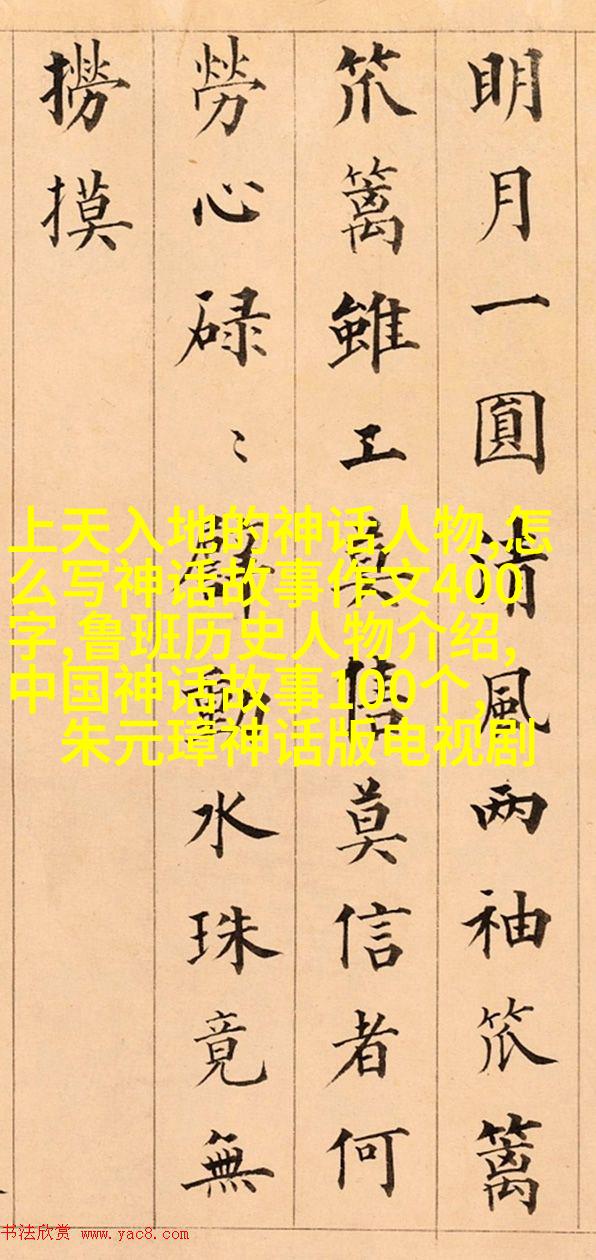 明月一圓清風两袖笊篱
笊篱雖工莫信者何
勞心碌〻動水珠竟無
撈摸
上天入地的神话人物,怎
么写神话故事作文400
字,鲁班历史人物介绍,
中国神话故事100个,
朱元璋神话版电视剧
书法欣赏 www.yac8.com